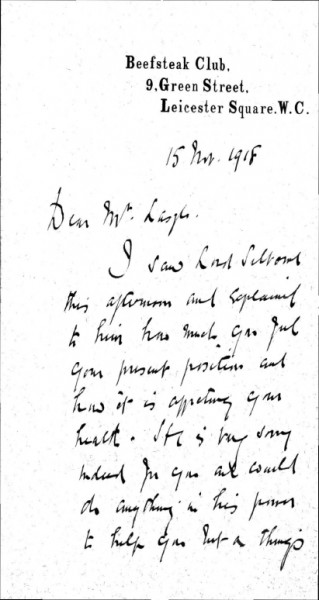 Beefsteak Club,
9, Green Street,
Leicester Square. W.C.
15 Nov. 1918
Dear Mrs. Laszlo.
I saw Lord Selborne
this afternoon and explained
to him how much you feel
your present position and
how it is affecting your
health. He is very sorry
indeed for you and would
do anything in his power
to help you but as things